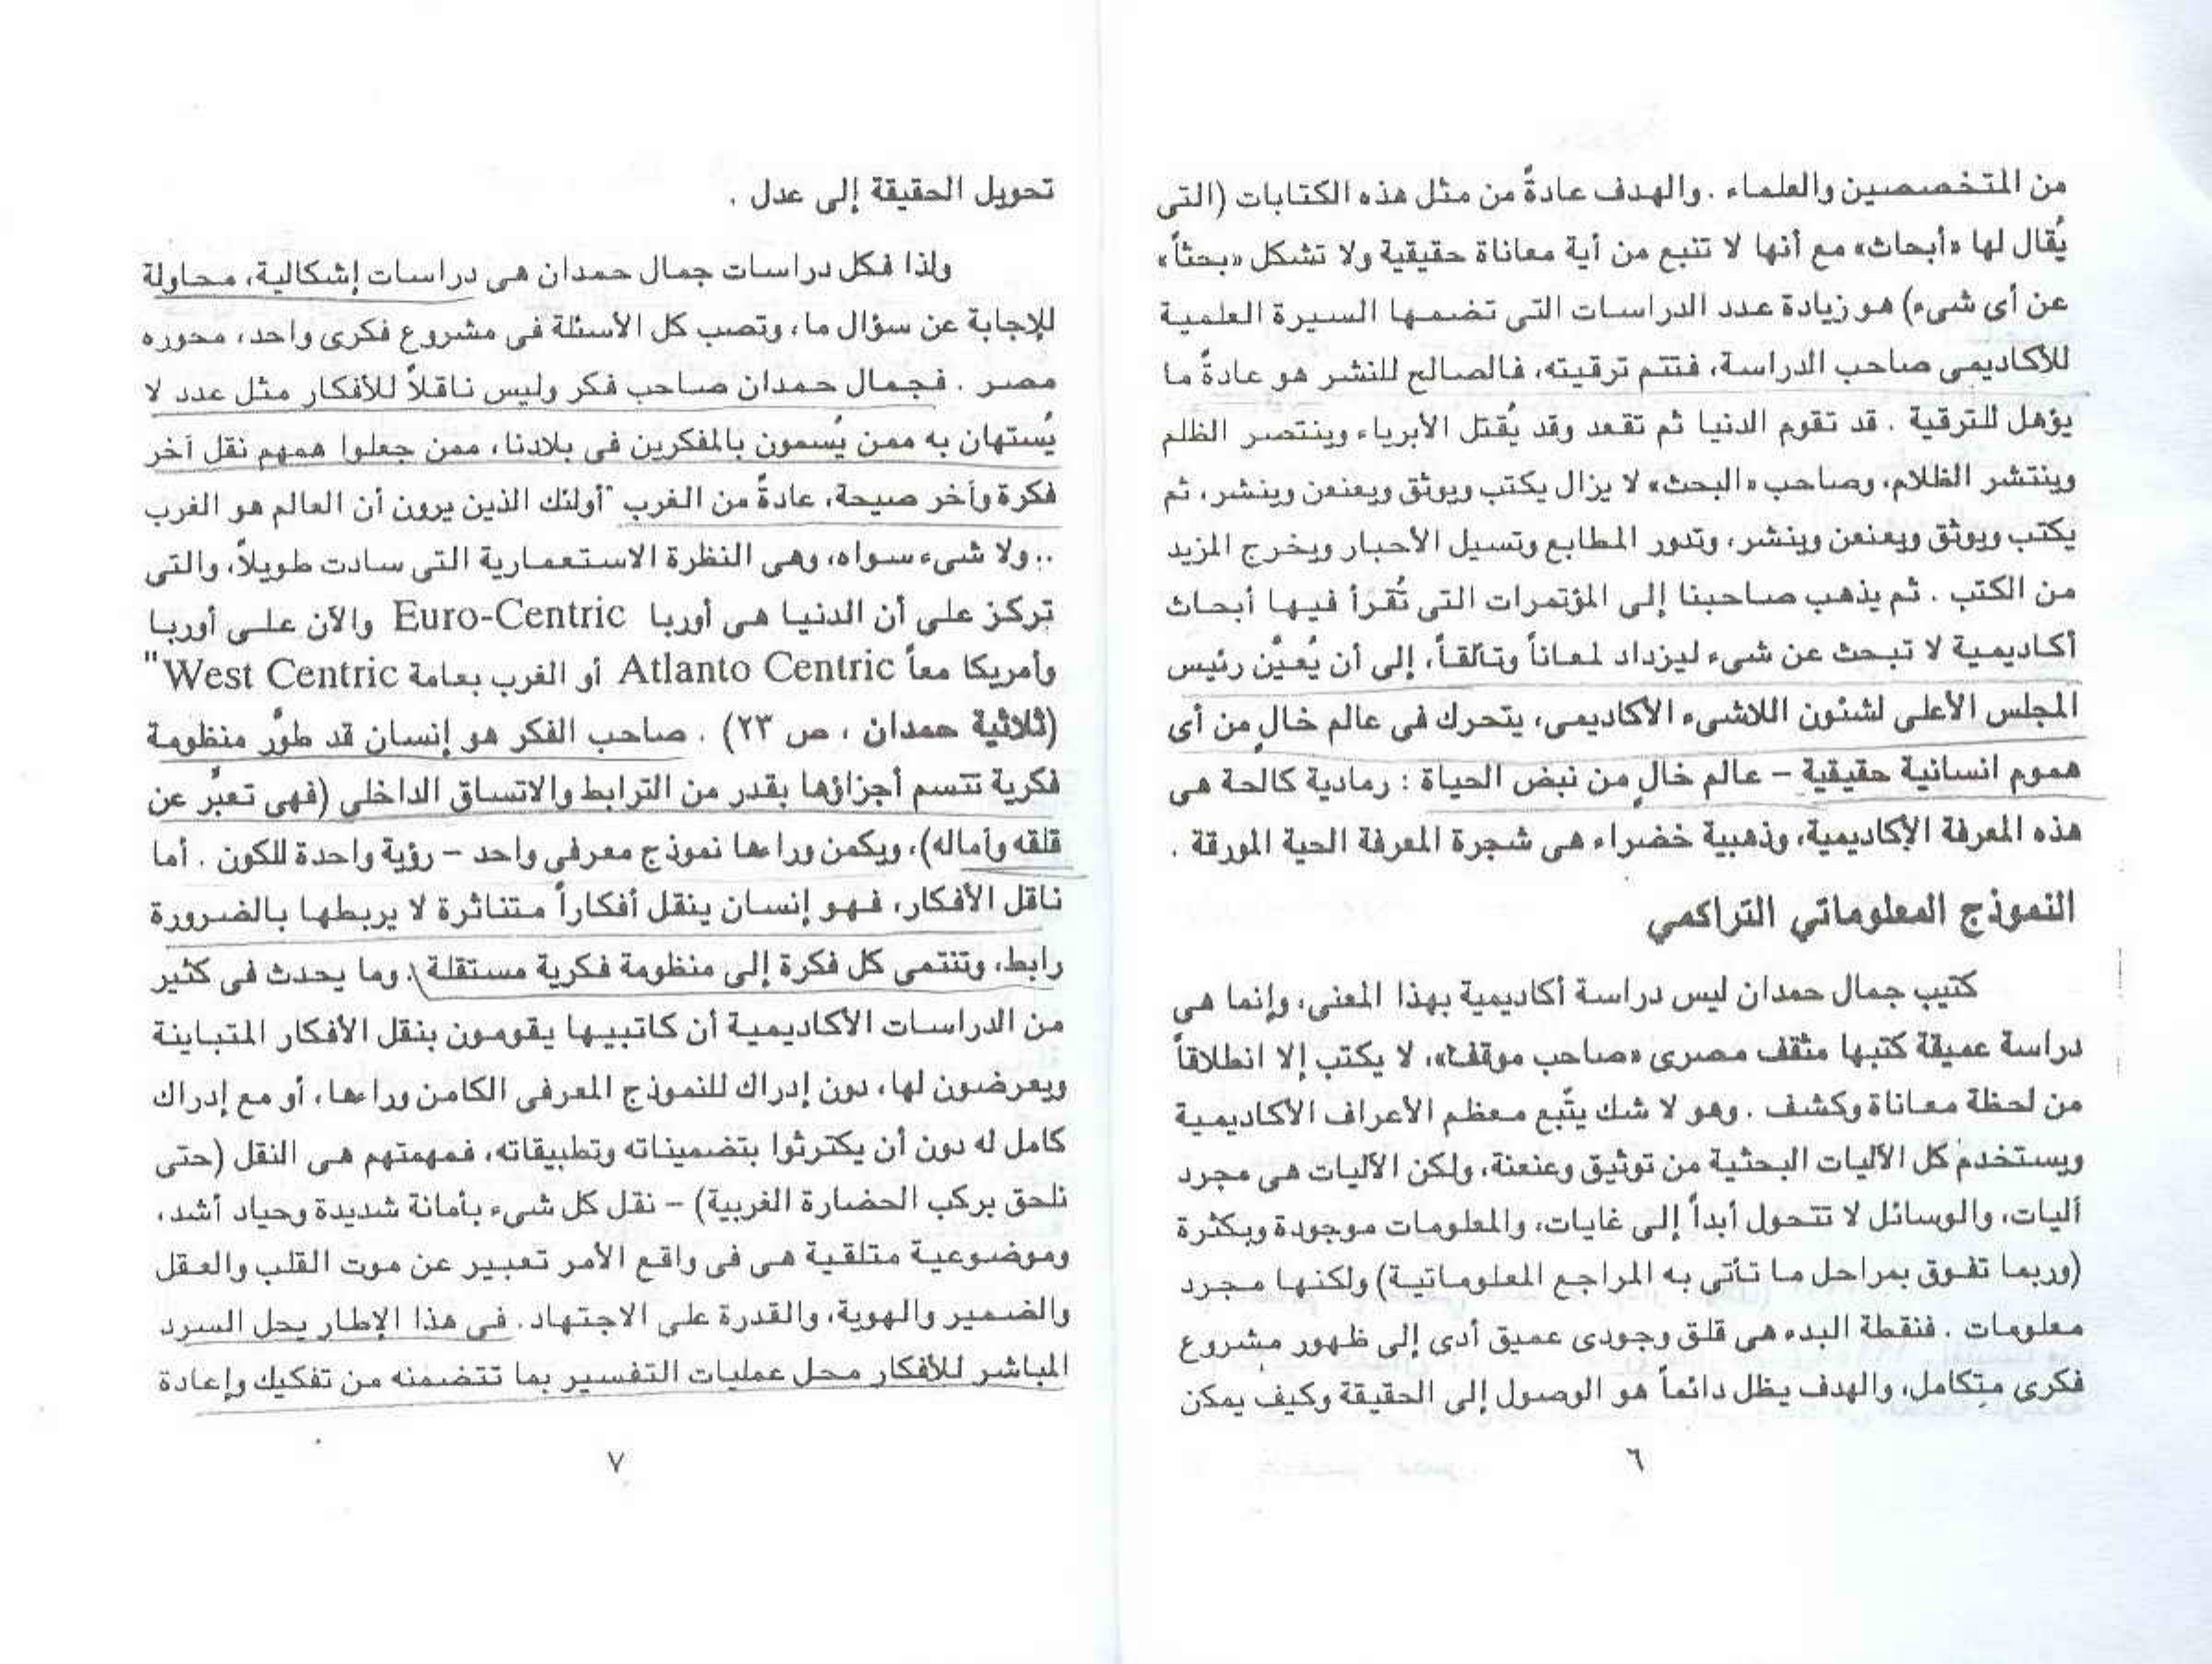 من المتخصصين والعلماء . والهدف عادةً من مثل هذه الكتابات (التى
يُقال لها «أبحاث» مع أنها لا تنبع من أية معاناة حقيقية ولا تشكل «بحثاً»
عن أى شىء) هو زيادة عدد الدراسات التى تضمها السيرة العلمية
للأكاديمى صاحب الدراسة، فتتم ترقيته، فالصالح للنشر هو عادةً ما
يؤهل للترقية . قد تقوم الدنيا ثم تقعد وقد يُقتل الأبرياء وينتصر الظلم
وينتشر الظلام، وصاحب «البحث» لا يزال يكتب ويوثق ويعنعن وينشر، ثم
يكتب ويوثق ويعنعن وينشر، وتدور المطابع وتسيل الأحبار ويخرج المزيد
من الكتب . ثم يذهب صاحبنا إلى المؤتمرات التى تُقرأ فيها أبحاث
أكاديمية لا تبحث عن شىء ليزداد لمعاناً وتألقاً، إلى أن يُعيَّن رئيس
المجلس الأعلى لشئون اللاشىء الأكاديمى، يتحرك فى عالم خالٍ من أى
هموم انسانية حقيقية – عالم خالٍ من نبض الحياة : رمادية كالحة هى
هذه المعرفة الأكاديمية، وذهبية خضراء هى شجرة المعرفة الحية المورقة .
النموذج المعلوماتي التراكمي
كتيب جمال حمدان ليس دراسة أكاديمية بهذا المعنى، وإنما هى
دراسة عميقة كتبها مثقف مصرى «صاحب موقف»، لا يكتب إلا انطلاقاً
من لحظة معاناة وكشف . وهو لا شك يتَّبع معظم الأعراف الأكاديمية
ويستخدم كل الآليات البحثية من توثيق وعنعنة، ولكن الآليات هى مجرد
آليات، والوسائل لا تتحول أبداً إلى غايات، والمعلومات موجودة وبكثرة
(وربما تفوق بمراحل ما تأتى به المراجع المعلوماتية) ولكنها مجرد
معلومات . فنقطة البدء هى قلق وجودى عميق أدى إلى ظهور مشروع
فكرى متكامل، والهدف يظل دائماً هو الوصول إلى الحقيقة وكيف يمكن
٦
تحويل الحقيقة إلى عدل .
ولذا فكل دراسات جمال حمدان هى دراسات إشكالية، محاولة
للإجابة عن سؤال ما، وتصب كل الأسئلة فى مشروع فكرى واحد، محوره
مصر . فجمال حمدان صاحب فكر وليس ناقلاً للأفكار مثل عدد لا
يُستهان به ممن يُسمون بالمفكرين فى بلادنا، ممن جعلوا همهم نقل آخر
فكرة وآخر صيحة، عادةً من الغرب "أولئك الذين يرون أن العالم هو الغرب
.. ولا شىء سواه، وهى النظرة الاستعمارية التى سادت طويلاً، والتى
تركز على أن الدنيا هى أوربا Euro-Centric والآن على أوربا
وأمريكا معاً Atlanto Centric أو الغرب بعامة West Centric"
(ثلاثية حمدان ، ص ٢٣) . صاحب الفكر هو إنسان قد طوَّر منظومة
فكرية تتسم أجزاؤها بقدر من الترابط والاتساق الداخلى (فهى تعبِّر عن
قلقه وآماله)، ويكمن وراءها نموذج معرفى واحد – رؤية واحدة للكون . أما
ناقل الأفكار، فهو إنسان ينقل أفكاراً متناثرة لا يربطها بالضرورة
رابط، وتنتمى كل فكرة إلى منظومة فكرية مستقلة . وما يحدث فى كثير
من الدراسات الأكاديمية أن كاتبيها يقومون بنقل الأفكار المتباينة
ويعرضون لها، دون إدراك للنموذج المعرفى الكامن وراءها، أو مع إدراك
كامل له دون أن يكترثوا بتضميناته وتطبيقاته، فمهمتهم هى النقل (حتى
نلحق بركب الحضارة الغربية) – نقل كل شىء بأمانة شديدة وحياد أشد،
وموضوعية متلقية هى فى واقع الأمر تعبير عن موت القلب والعقل
والضمير والهوية، والقدرة على الاجتهاد. فى هذا الإطار يحل السرد
المباشر للأفكار محل عمليات التفسير بما تتضمنه من تفكيك وإعادة
٧